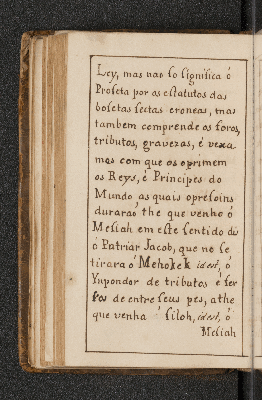 Ley, mas nao so significa ó
Profeta por as estatutos das
boletas sectas eroneas, mas
tambem comprende os foros,
tributos, gravezas, é vexa
mos com que os oprimem
os Reys, é Principes do
Mundo as quais opresoins
durarað the que venho ó
Mesiah em este sentido diz
ó Patriar Jacob, que nó se
tirara ó Mehokek idest, ó
Ynpondor de tributos é ser
de entre seus pes, athe
que venha ó siloh, idest, ó
Mesiah